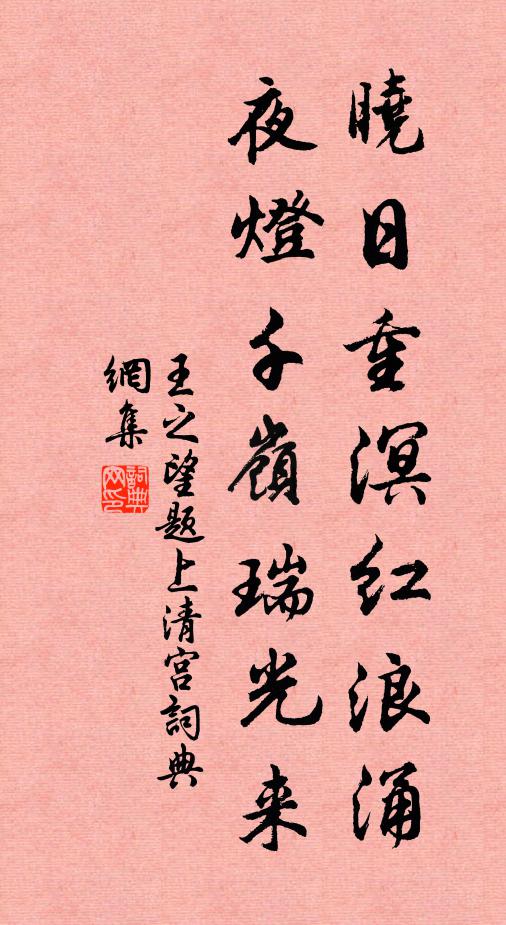 曉日重溟紅浪涌
夜燈千嶺瑞光来
王之望題上清宫詞典
網集
詞典
网印